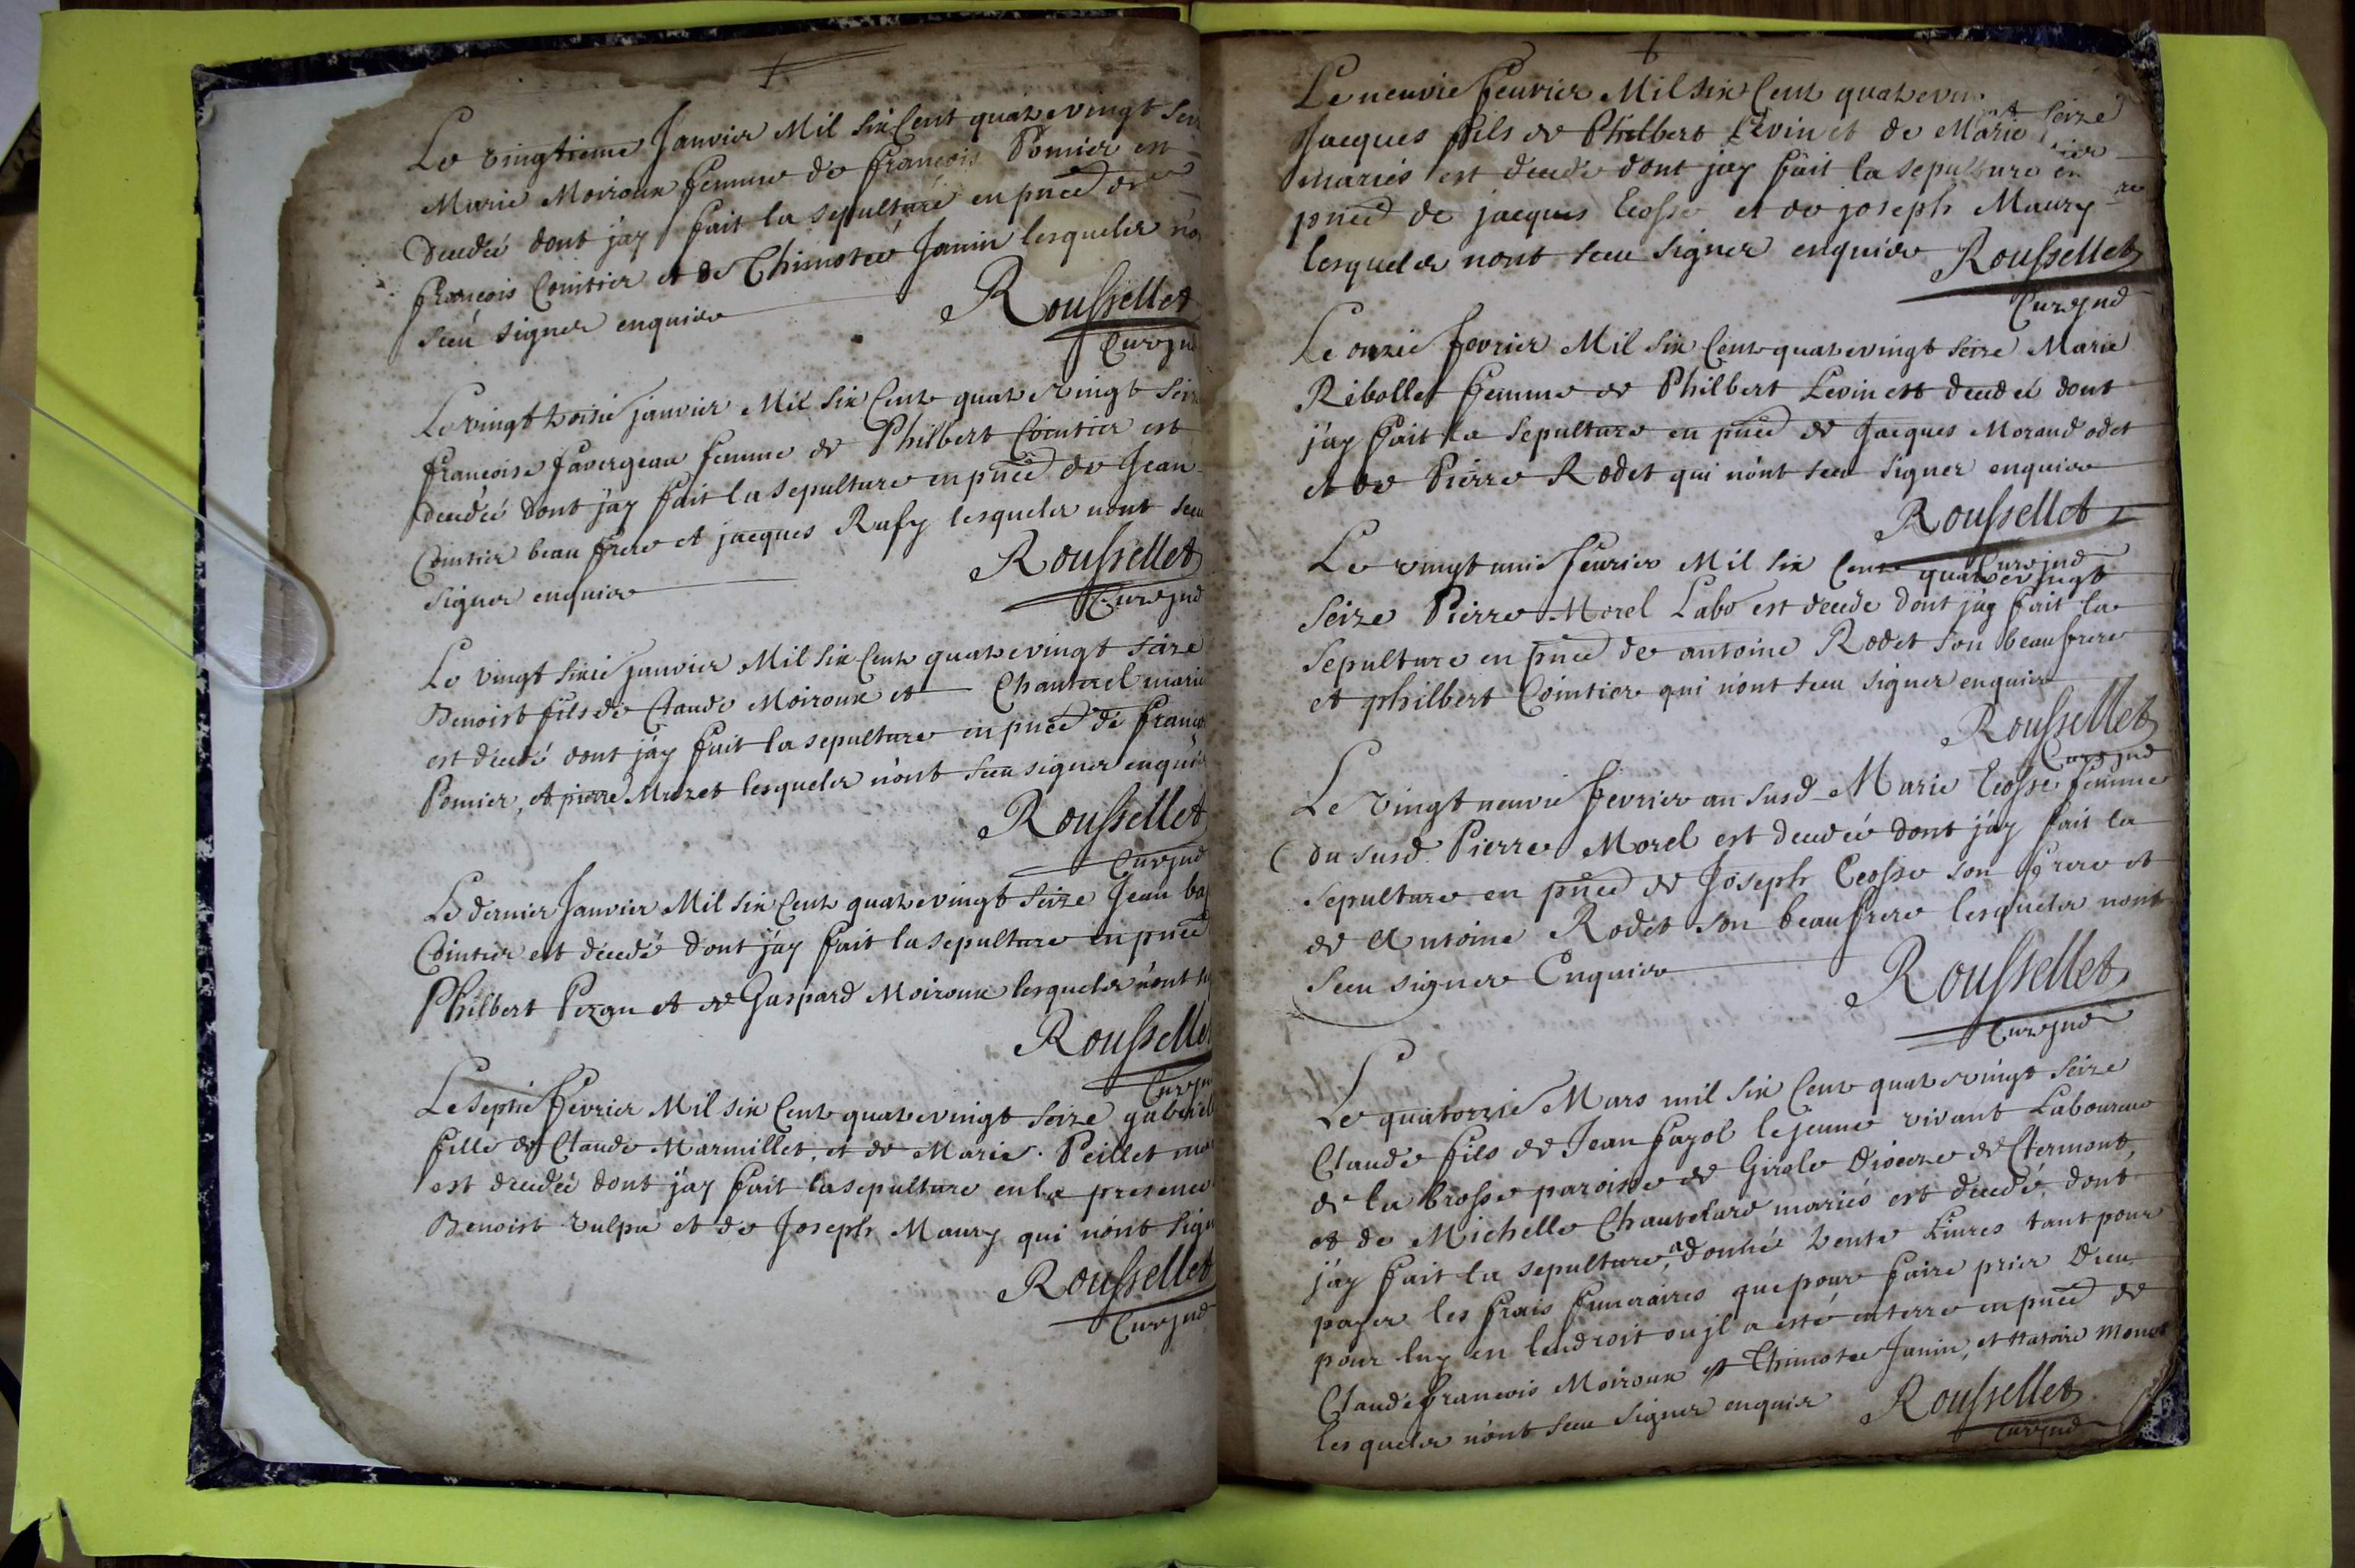 Le vingtieme Janvier Mil Six Cent quatrevingt sei
Marie Moiroux femme de françois Pomier est
decedeé dont jay fait la sepulture en pnce de
françois Cointier et de Thimoteé Janin lesqueles no
sceu signer enquiere
Roussellet
Curé jnd
Le vingt troisié janvier Mil Six Cent quatrevingt seiz
francoise favergeau femme de Philbert Cointier est
decedeé dont jay fait la sepulture en pnce de Jean
Cointier beau frere et jacques Rafy lesqueles nont sceu
signer enquiere
Roussellet
Curé jnd
Le vingt sixié janvier Mil Six Cent quatrevingt seize
Benoist fils de Claude Moiroux et Chanterel marié
est decedé dont jay fait la sepulture en pnce de franço
Pomier, et pierre Muzet lesqueles nont sceu signer enquie
Roussellet
Curé jnd
Le dernier Janvier Mil Six Cent quatrevingt seize Jean bap
Cointier est decedé dont jay fait la sepulture en pnce
Philbert Pezan et de Gaspard Moiroux lesqueles nont s
Roussellet
Curé jn
Le septié fevrier Mil six Cent quatrevingt seize gabriel
fille de Claude Marmillet, et de Marie Peillet ma
est decedeé dont jay fait la sepulture en la presence
Benoist vulpa et de Joseph Maury qui nont sign
Roussellet
Curé jnd
Le neuvié feuvrier Mil six Cent quatrevin seize
Jacques fils de Philbert Levin et de Marie
mariés est decedé dont jay fait la sepulture en
pnce de jacques Ecosse et de joseph Maury
lesqueles nont sceu signer enquiere Roussellet
Curé jnd
Le onzié fevrier Mil Six Cent quatrevingt seize Marie
Ribollet femme de Philbert Levin est decedeé dont
jay fait la sepulture en pnce de Jacques Morand odet
et de Pierre Rodet qui nont sceu signer enquiere
Roussellet
Curé jnd
Le vingt unié feuvrier Mil Six Cent quatrevingt
seize Pierre Morel Labo est decedé dont jay fait la
sepulture en pnce de antoine Rodet son beaufrere
et philbert Cointier qui nont sceu signer enquiere
Roussellet
Curé jnd
Le vingt neuvié fevrier an susd Marie Ecosse femme
du susd Pierre Morel est decedeé dont jay fait la
sepulture en pnce de Joseph Ecosse son frere et
de Antoine Rodet son beaufrere lesqueles nont
sceu signer Enquiere
Roussellet
Curé jnd
Le quatorzié Mars mil Six Cent quatrevingt seize
Claude fils de Jean fayol le jeune vivant Laboureur
de la brosse paroisse de Girole Diocese de Clermont,
et de Michelle Chautelare mariés est decedé, dont
jay fait la sepulture, a donné trente Livres tant pour
payer les frais funeraires que pour faire prier Dieu
pour luy en lendroit ou jl a esté enterré en pnce de
Claude françois Moiroux et Thimotee Janin, et
lesqueles nont sceu signer enquier Roussellet
Curé jnd